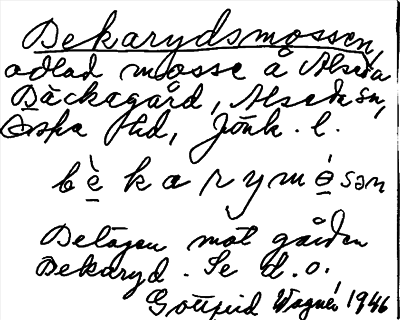 Bekarydsmossen,
odlad mosse å Alseda
Bäckagård, Alseda sn,
Östra hd, Jönk. l.
bè̱karymó̱sən
Belägen mot gården
Bekaryd. Se d.o.
Gottfrid Wagnér 1946